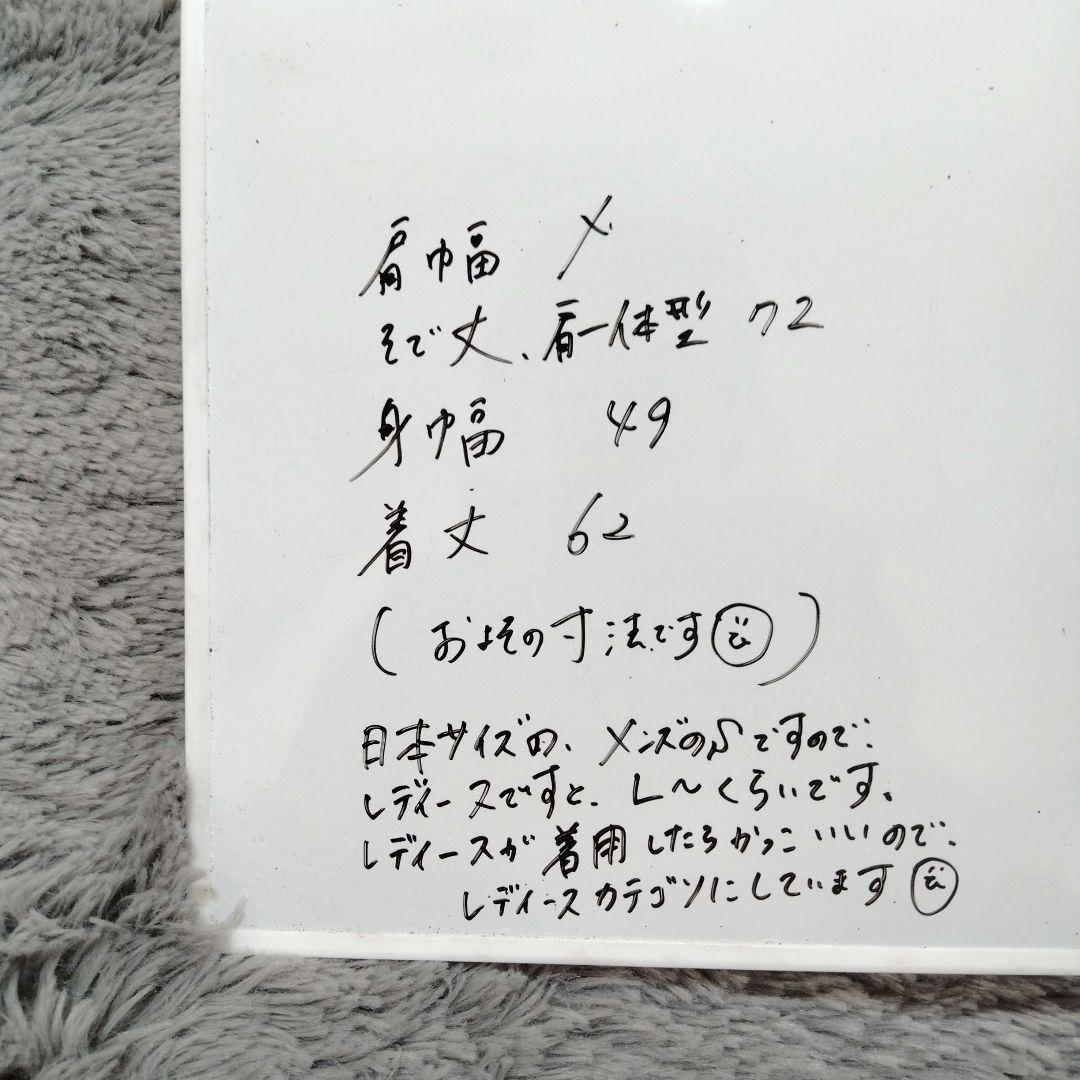 肩幅 ✗
そで丈、肩一体型 72
身幅 49
着丈 62
(およその寸法です)
日本サイズの、メンズのSですので、
レディースですと、L〜くらいです。
レディースが着用したらかっこいいので、
レディースカテゴリにしています